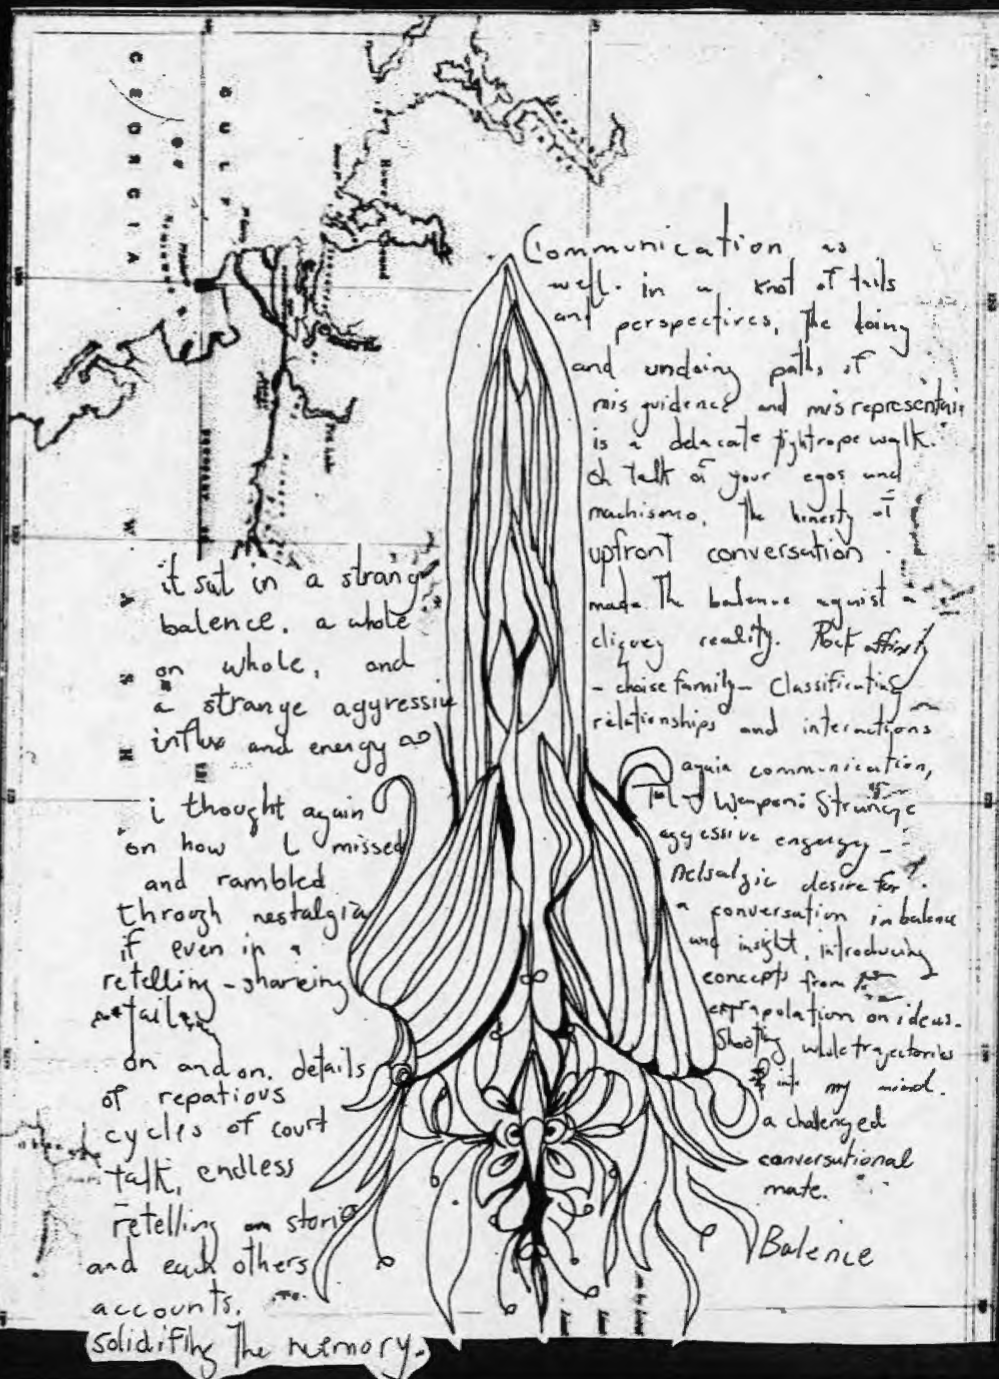 GULF
OF
GEORGIA
WASH
Howe Sound
it sat in a strang
balence. a whole
on whole, and
a strange aggressive
influx and energy
i thought again
on how i missed
and rambled
through nestalgia
if even in a
retelling - shareing
tail
on and on. details
of repatious
cycles of court
talk, endless
retelling on storie
and each others
accounts.
solidifing The memory.
Communication as
well. in a knot of tails
and perspectives, The doing
and undoing paths of
misguidence and misrepresentain
is a delacate tightrope walk.
oh talk of your egos and
machismo, The honesty of
upfront conversation
made. The balence aguist a
cliquey reality. Rock affinity
- choise family - Classificating
relationships and interactions
again communication,
Tool - Weapon: Strainge
aggessive engergy -
nelsalgic desire for
a conversation in balence
and insight, introducing
concepts from
extrapolation on ideas.
Shooting whole trajectories
into my mind.
a challenged
conversational
mate.
Balence